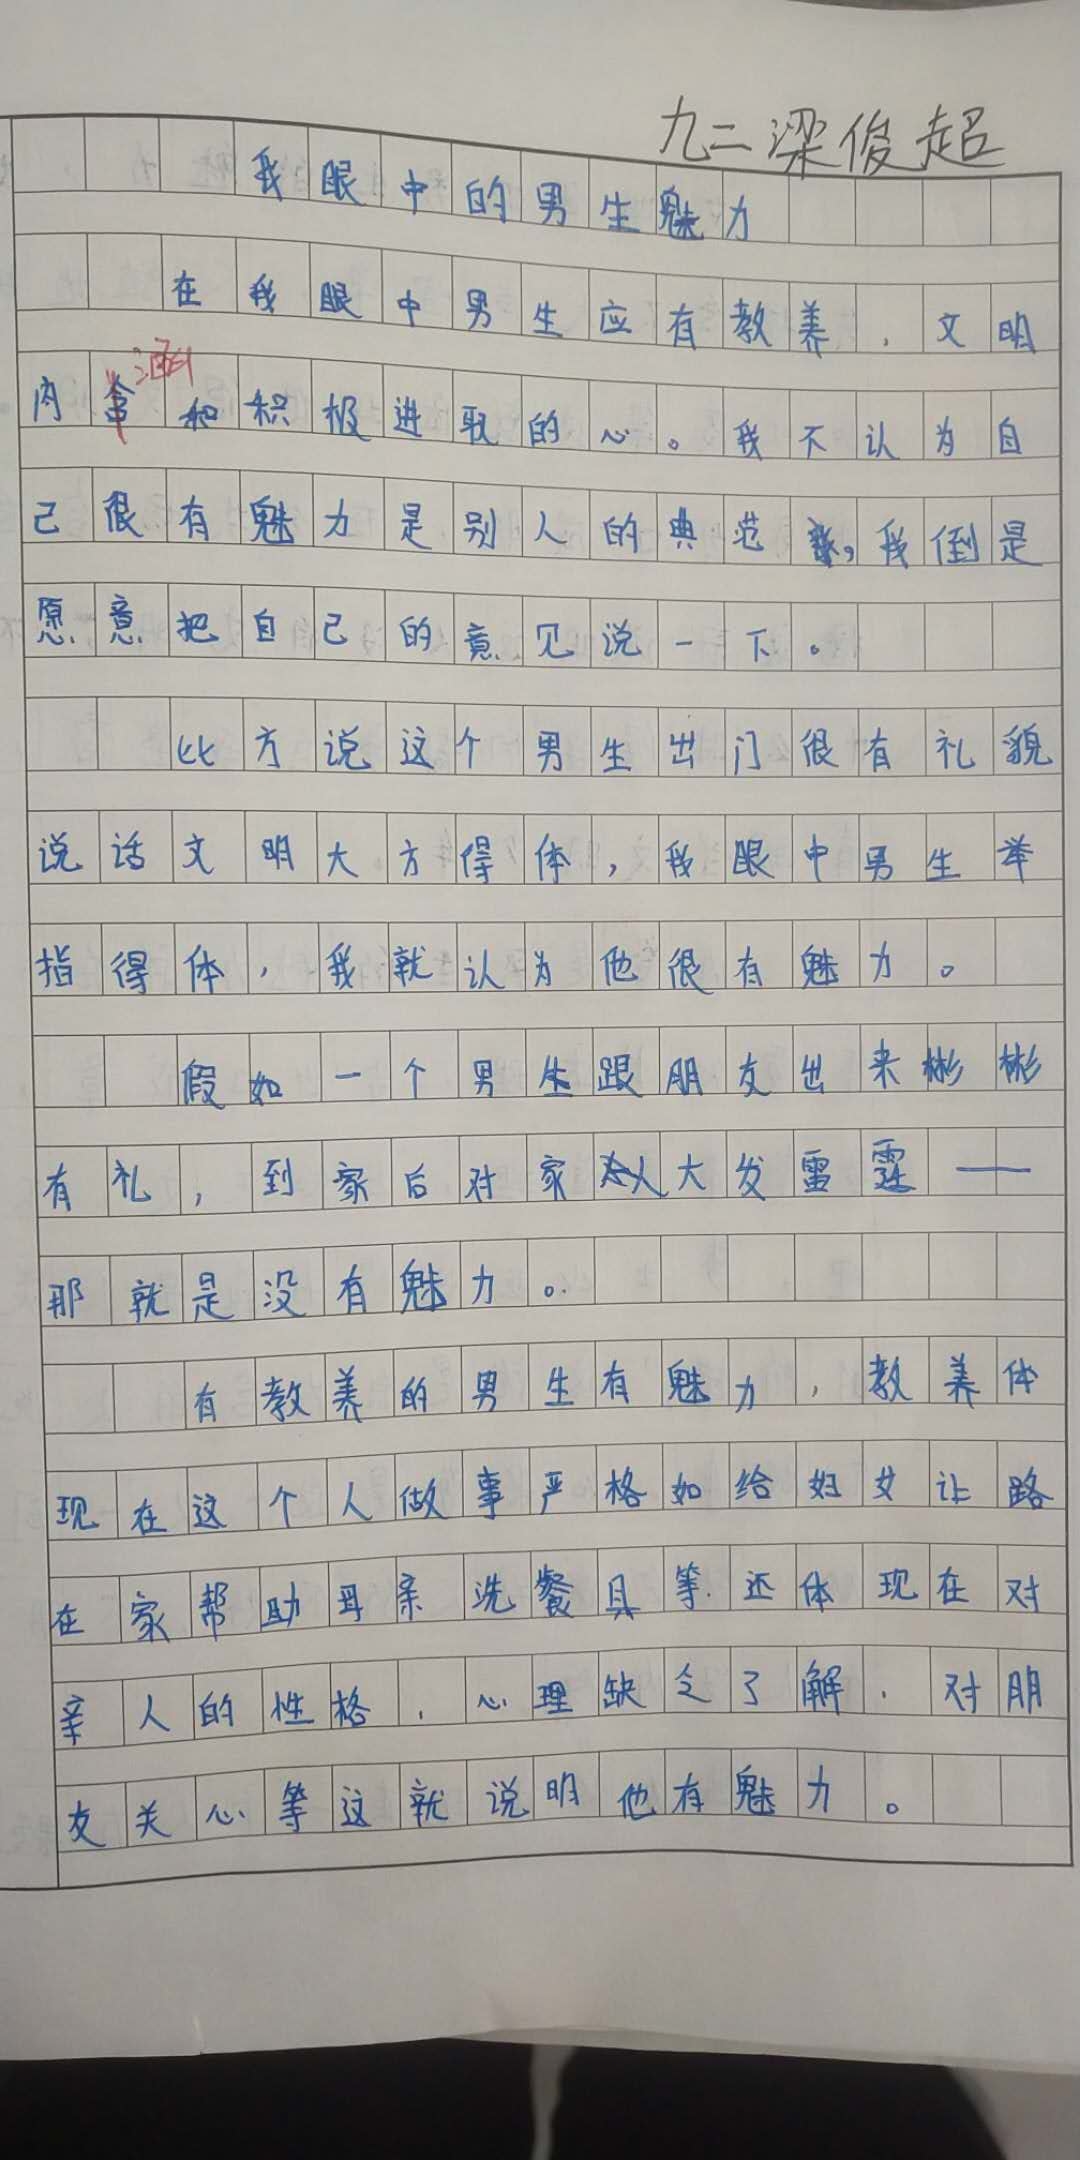 九二梁俊超
我眼中的男生魅力
在我眼中男生应有教养,文明
内含涵和积极进取的心。我不认为自
己很有魅力是别人的典范,我倒是
愿意把自己的意见说一下。
比方说这个男生出门很有礼貌
说话文明大方得体,我眼中男生举
指得体,我就认为他很有魅力。
假如一个男生跟朋友出来彬彬
有礼,到家后对家人大发雷霆——
那就是没有魅力。
有教养的男生有魅力,教养体
现在这个人做事严格如给妇女让路
在家帮助母亲洗餐具等.还体现在对
亲人的性格,心理缺乏了解,对朋
友关心等这就说明他有魅力。